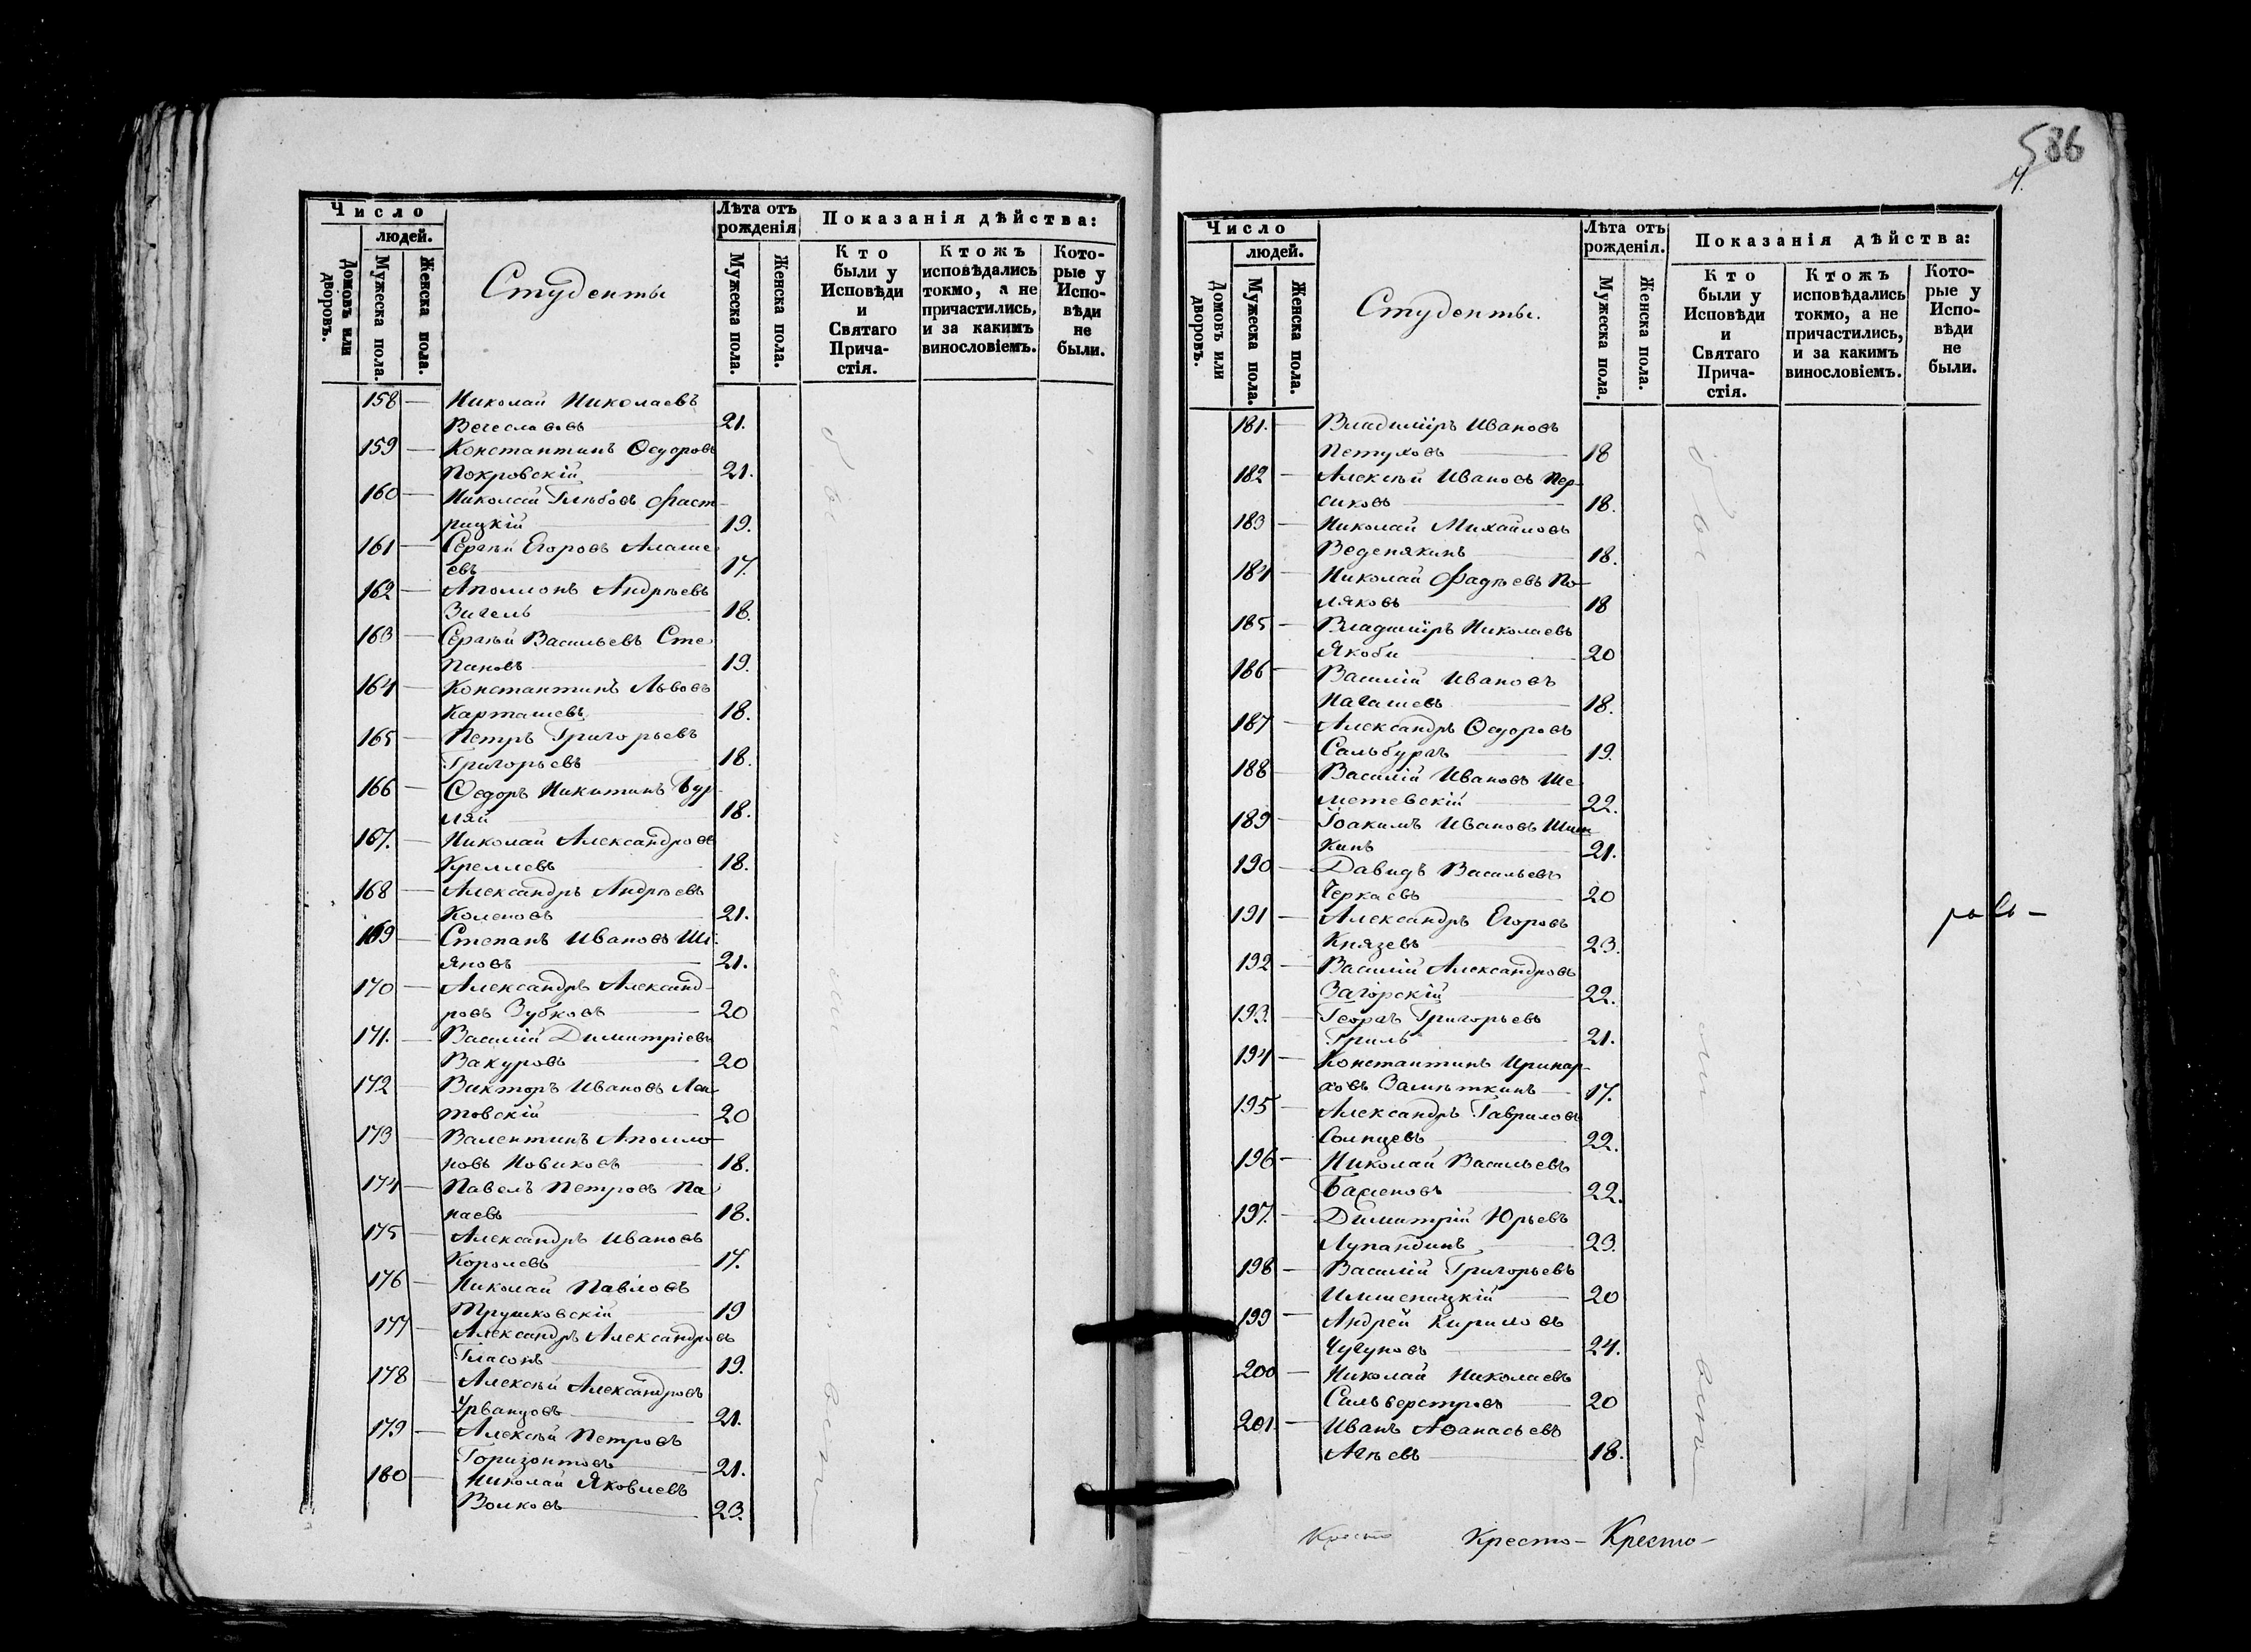 Число
людей.
Домовъ или дворовъ.
Мужеска пола.
Женска пола.
Студенты
Лѣта отъ рожденія
Мужеска пола.
Женска пола.
Показанія дѣйства:
Кто были у Исповѣди и Святаго Прича-стія.
Ктожъ исповѣдались токмо, а не причастились, и за какимъ винословіемъ.
Кото-рые у Испо-вѣди не были.
158 — Николай Николаевъ
Вечесловъ 21.
159 — Константинъ Ѳедоровъ
Покровскій 21.
160 — Николай Глѣбовъ Фаст-
рицкій 19.
161 — Сергѣй Егоровъ
евъ 17.
162 — Аполлонъ Андрѣевъ
18.
163 — Сергѣй Васильевъ Сте-
пановъ 19.
164 — Константинъ Львовъ
Карташевъ 18.
165 — Петръ Григорьевъ
Григорьевъ 18.
166 — Ѳедоръ Никитинъ
18.
167. — Николай Александровъ
Кремлевъ 18.
168 — Александръ Андрѣевъ
Коленовъ 21.
169 — Степанъ Ивановъ Ши-
яновъ 21.
170 — Александръ Александ-
ровъ Зубковъ 20
171. — Василій Димитріевъ
Вакуровъ 20
172 — Викторъ Ивановъ
товскій 20
173 — Валентинъ Аполло-
новъ Новиковъ 18.
174 — Павелъ Петровъ Па-
наевъ 18.
175 — Александръ Ивановъ
Королевъ 17.
176 — Николай Павловъ
Трушковскій 19
177 — Александръ Александровъ
Гласонъ 19.
178 — Алексѣй Александровъ
Урванцовъ 21.
179 — Алексѣй Петровъ
Горизонтовъ 21.
180 — Николай Яковлевъ
Волковъ 23.
были
586
Число
людей.
Домовъ или дворовъ.
Мужеска пола.
Женска пола.
Студенты.
Лѣта отъ рожденія.
Мужеска пола.
Женска пола.
Показанія дѣйства:
Кто были у Исповѣди и Святаго Прича-стія.
Ктожъ исповѣдались токмо, а не причастились, и за какимъ винословіемъ.
Кото-рые у Испо-вѣди не были.
181. — Владиміръ Ивановъ
Петуховъ 18
182 — Алексѣй Ивановъ Пер-
сиковъ 18.
183 — Николай Михайловъ
Веденякинъ 18.
184 — Николай Фадѣевъ По-
ляковъ 18
185 — Владиміръ Николаевъ
Якоби 20
186 — Василій Ивановъ
18.
187 — Александръ Ѳедоровъ
Сальбургъ 19.
188 — Василій Ивановъ Ше-
метевскій 22.
189 — Іоакимъ Ивановъ Шиш-
кинъ 21.
190 — Давидъ Васильевъ
Черкаевъ 20
191 — Александръ Егоровъ
Князевъ 23.
192 — Василій Александровъ
Загорскій 22.
193. — Георгъ Григорьевъ
Гриль 21.
194 — Константинъ Иринар-
ховъ Замѣткинъ 17.
195 — Александръ Гавриловъ
Солнцевъ 22.
196 — Николай Васильевъ
Баженовъ 22.
197. — Димитрій Юрьевъ
Лупандинъ 23.
198 — Василій Григорьевъ
Имшенецкій 20
199 — Андрей Кириловъ
Чугуновъ 24.
200 — Николай Николаевъ
Сильверстровъ 20
201. — Иванъ Аѳанасьевъ
Агѣевъ 18.
были
Кресто Кресто- Кресто-